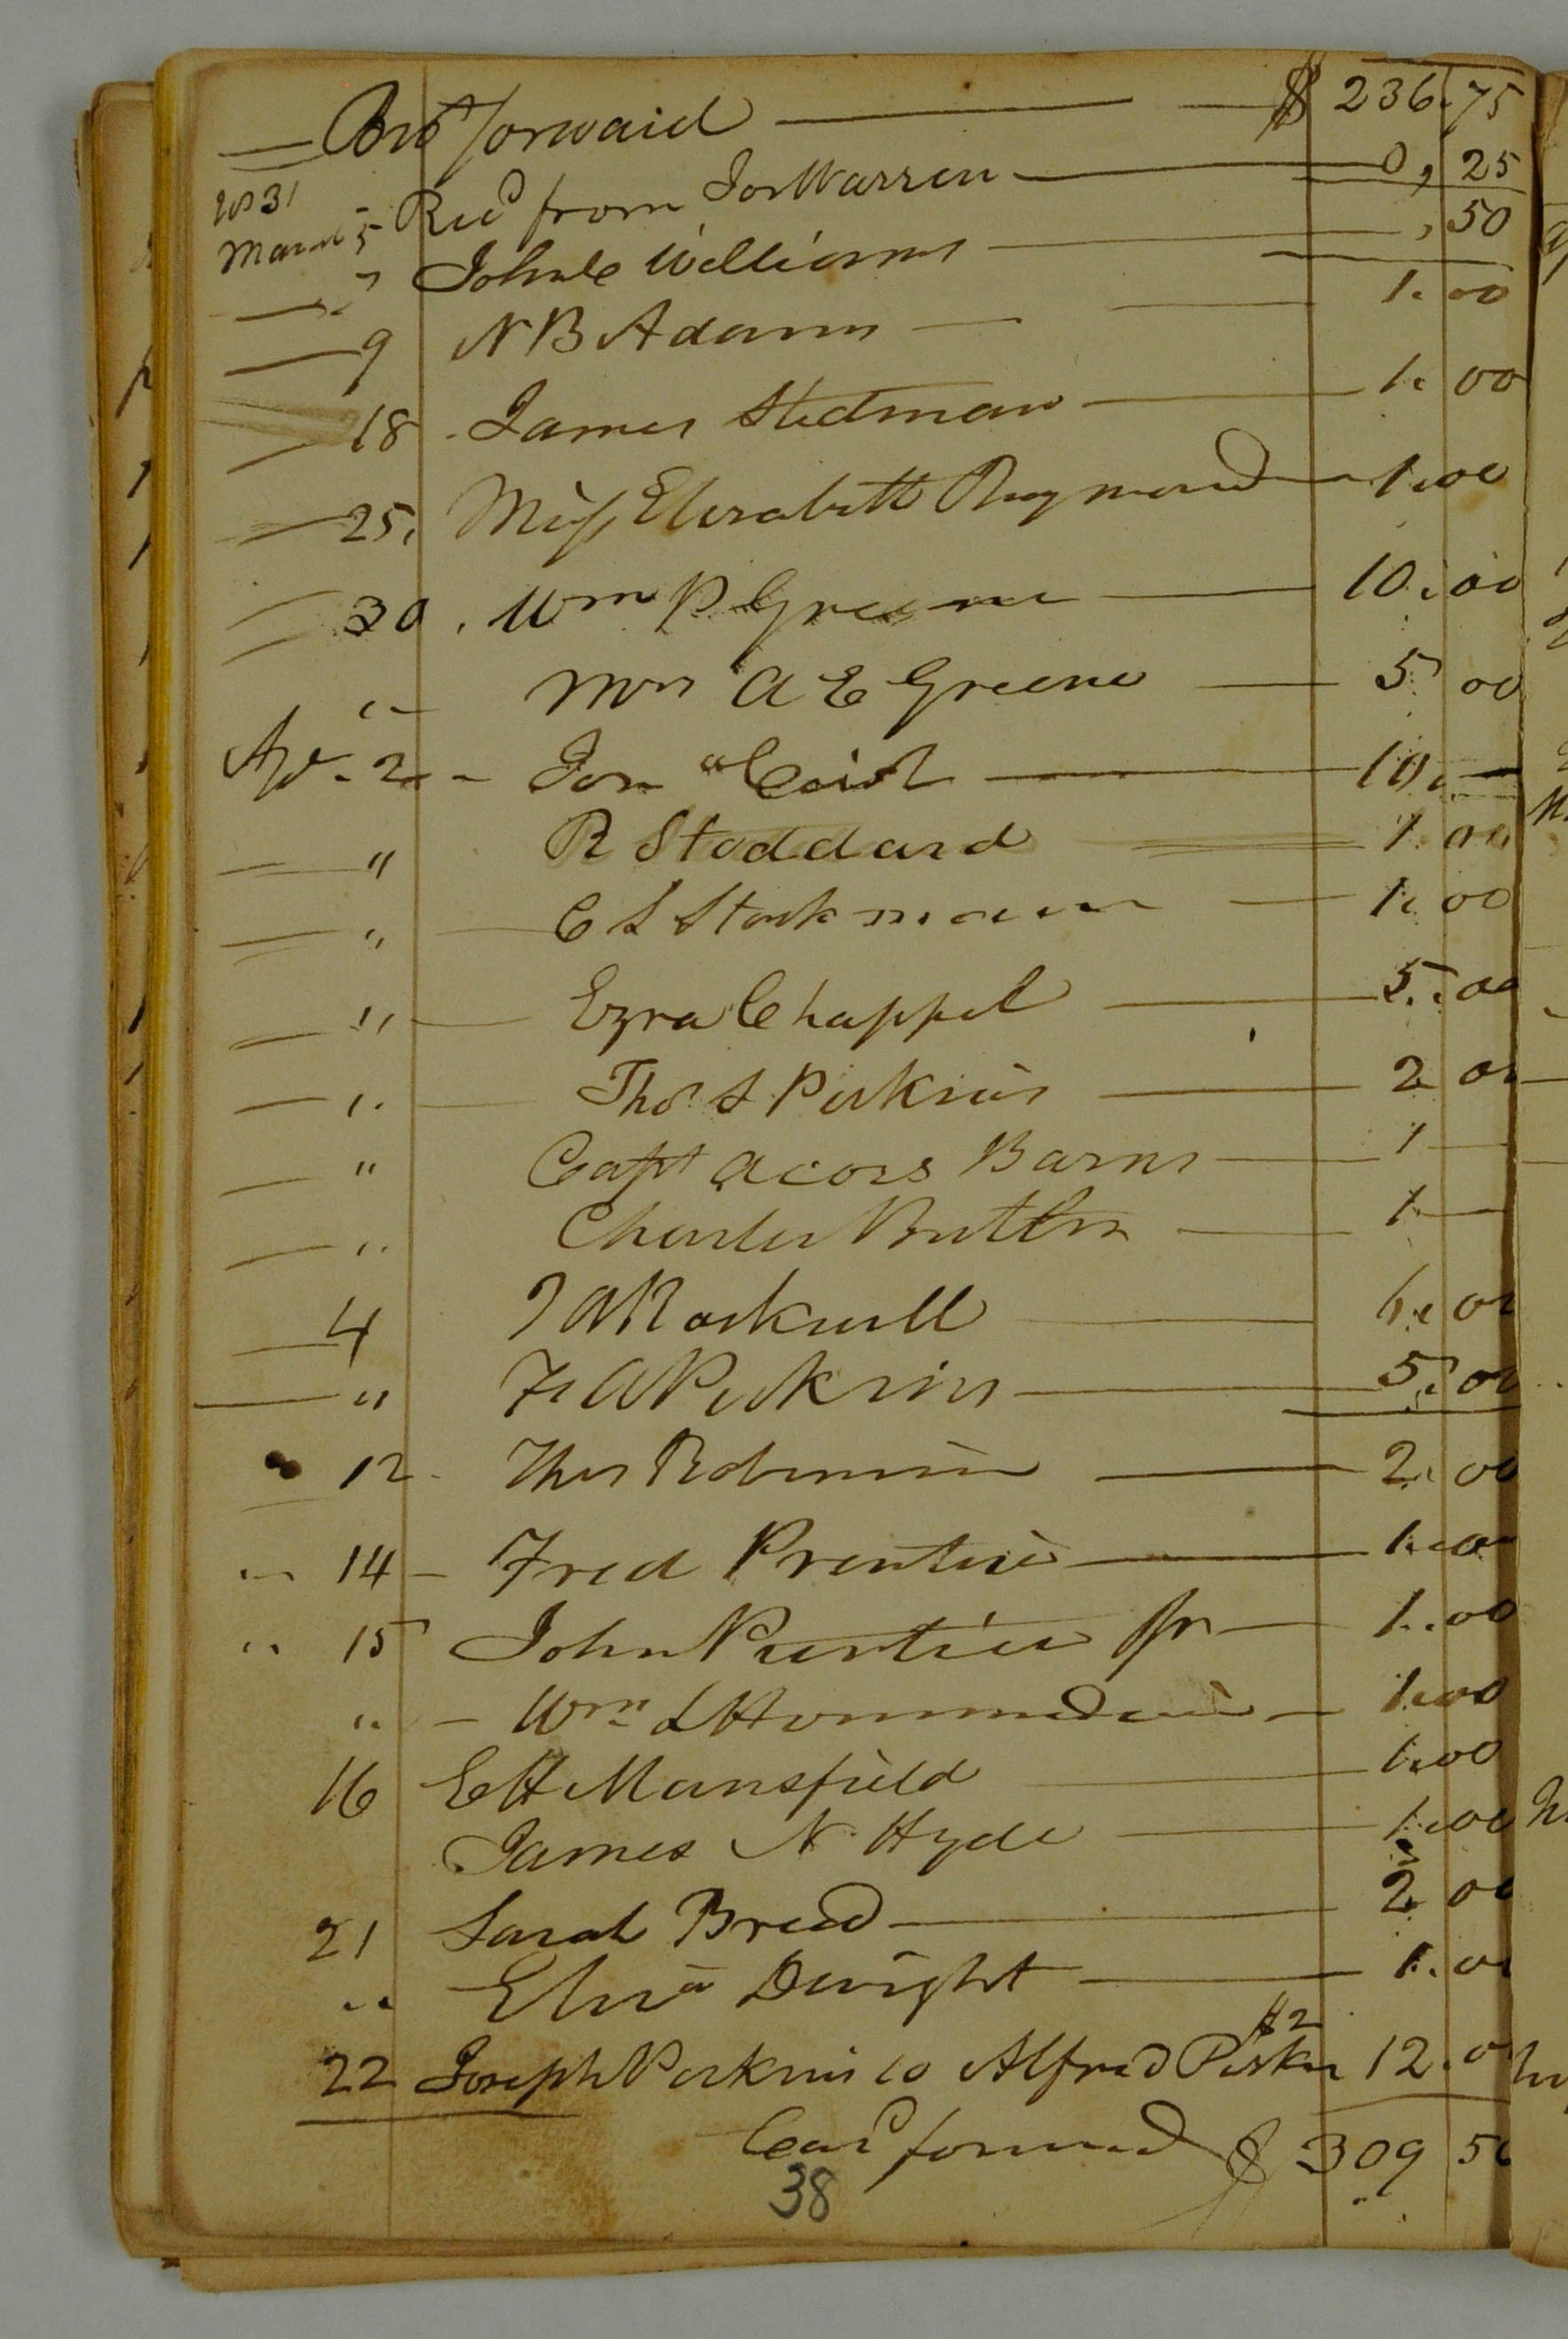 Bro't forward $ 236.75
1831
March 5 Rec'd from Jos Warren 0,25
7 John C Williams ,50
9 N B Adams 1.00
18 James Stedman 1.00
25, Miss Elizabeth Raymond 1.00
30, Wm P Greene 10.00
" Mrs A E Greene 5 00
Apr. 2 - Jon Coit 10. —
" R Stoddard 1.00
" C S Stockman 1.00
" Ezra Chappel 5.00
" Thos S Perkins 2 00
" Capt Acors Barns 1 —
" Charles Butler 1 —
4 J A Rockwell 1.00
" F A Perkins 5.00
" 12 Thos Robinson 2.00
" 14 - Fred Prentice 1.00
" 15 John Prentice Jr 1.00
" - Wm L Hommedieu 1.00
16 E H Mansfield 1.00
James N. Hyde 1.00
21 Sarah Breed 2 00
" Eliza Dwight 1.00
$2
22 Joseph Perkins 10 Alfred Perkins 12.0
Car'd forward $ 309 50
38